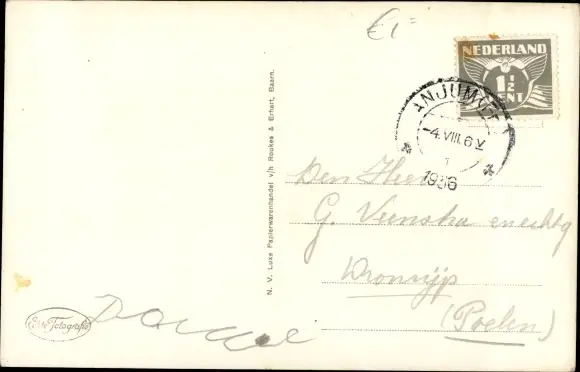 €1=
NEDERLAND
1 1/2
CENT
ANJUM
-4.VIII.6V
1936
Den Heer
G. Veenstra en echtg
Dronrijp
(Poelen)
N. V. Luxe Papierwarenhandel v/h Roukes & Erhart, Baarn.
Echte Fotografie